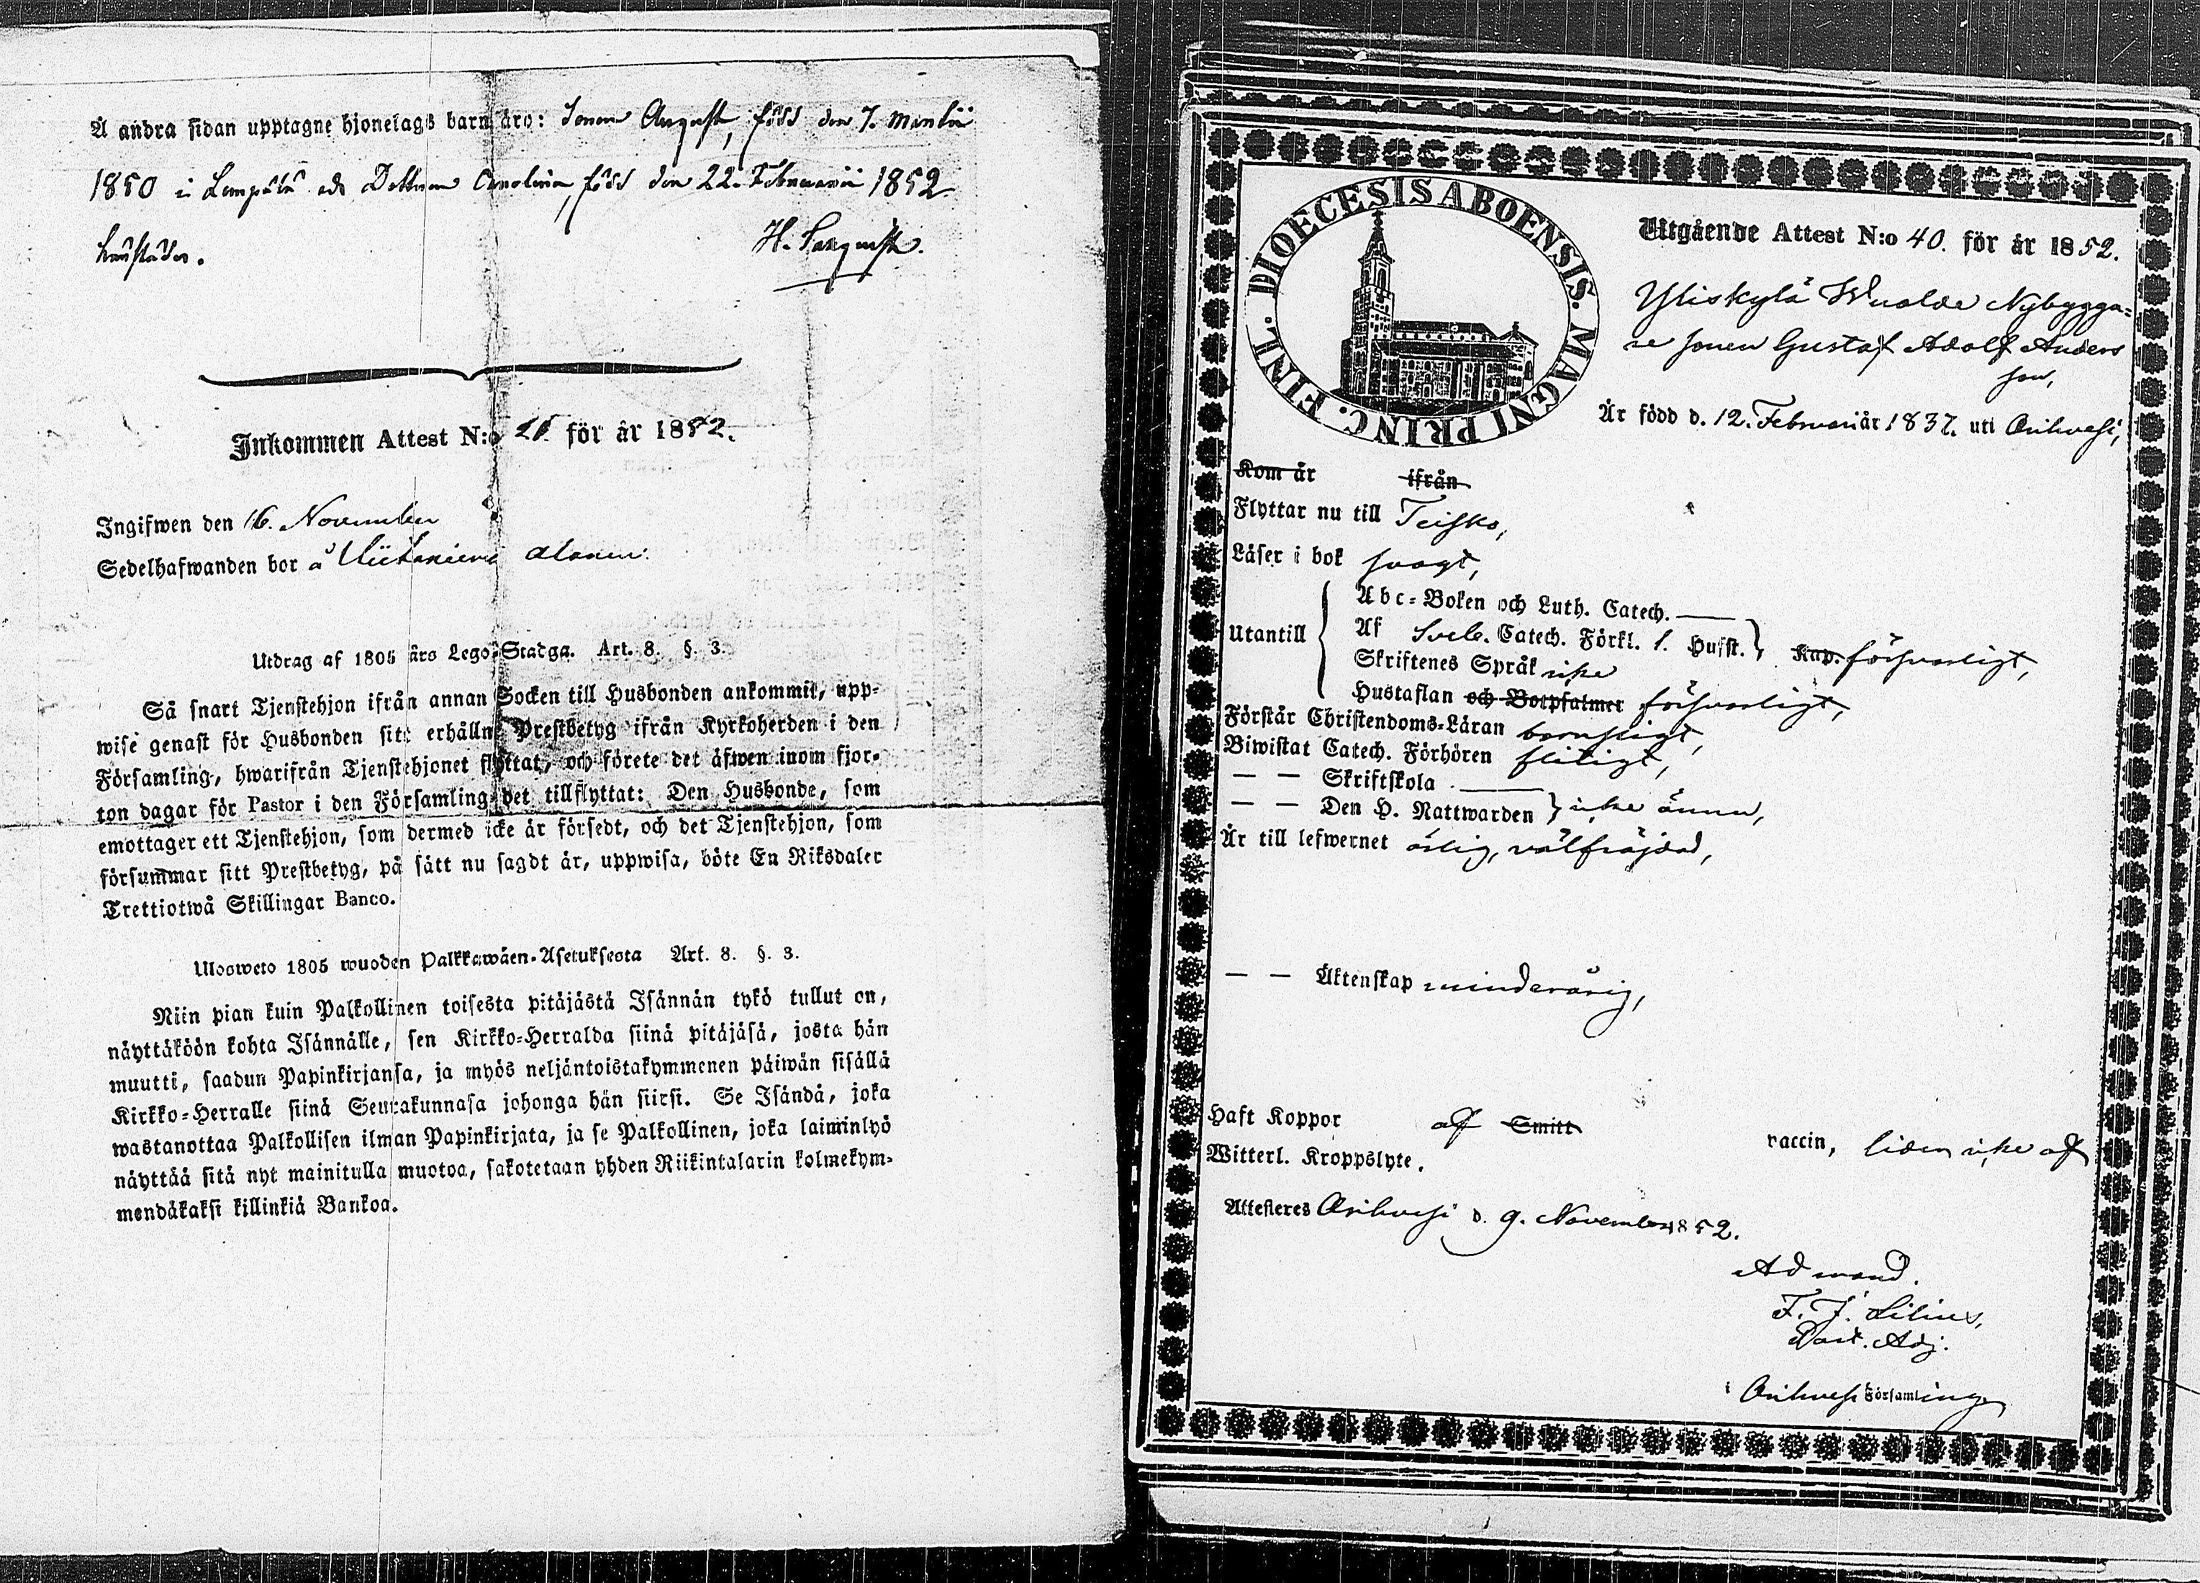 Å andra sidan upptagne hjonelags barn äro: Sonen August, född den 7. Martii
1850 i Lempälä och Dottren Carolina, född den 22. Februarii 1852
H.
Inkommen Attest N:o 21. för år 1852.
Ingifwen den 16. November
Sedelhafwanden bor å
Utdrag af 1805 års Lego-Stadga. Art. 8. §. 3.
Så snart Tjenstehjon ifrån annan Socken till Husbonden ankommit, upp-
wise genast för Husbonden sitt erhållne Prestbetyg ifrån Kyrkoherden i den
Församling, hwarifrån Tjenstehjonet flyttat, och förete det äfwen inom fjor-
ton dagar för Pastor i den Församling det tillflyttat: Den Husbonde, som
emottager ett Tjenstehjon, som dermed icke är försedt, och det Tjenstehjon, som
försummar sitt Prestbetyg, på sätt nu sagdt är, uppwisa, böte En Riksdaler
Trettiotwå Skillingar Banco.
Ulosweto 1805 wuoden Palkkawäen-Asetuksesta Art. 8. §. 3.
Niin pian kuin Palkollinen toisesta pitäjästä Isännän tykö tullut on,
näyttäköön kohta Isännälle, sen Kirkko-Herralda siinä pitäjäsä, josta hän
muutti, saadun Papinkirjansa, ja myös neljäntoistakymmenen päiwän sisällä
Kirkko-Herralle siinä Seurakunnasa johonga hän siirsi. Se Isändä, joka
wastanottaa Palkollisen ilman Papinkirjata, ja se Palkollinen, joka laiminlyö
näyttää sitä nyt mainitulla muotoa, sakotetaan yhden Riikintalarin kolmekym-
mendäkaksi killinkiä Bankoa.
DIOECESIS ABOENSIS. MAGNI PRINC. FINL.
Utgående Attest N:o 40. för år 1852.
Yliskylä Nybygga-
re sonen Gustaf Adolf Anders
son,
Är född d. 12. Februari år 1837. uti Orihvesi,
Kom år ifrån
Flyttar nu till Teisko,
Läser i bok svagt,
Utantill
Abc-Boken och Luth. Catech. —
Af Sveb. Catech. Förkl. 1. Hufst. Kap. försvarligt,
Skriftenes Språk icke
Hustaflan och Botpsalmer försvarligt,
Förstår Christendoms-Läran barnsligt,
Biwistat Catech. Förhören flitigt,
— — Skriftskola —
— — Den H. Nattwarden icke ännu,
Är till lefwernet ärlig, välfräjdad,
— — Äktenskap minderårig,
Haft Koppor af Smitt vaccin, liden icke af
Witterl. Kroppslyte.
Attesteres Orihvesi d. 9. November 1852.
Ad mand.
F. J. Lilius,
Past. Adj.
i Orihvesi Församling